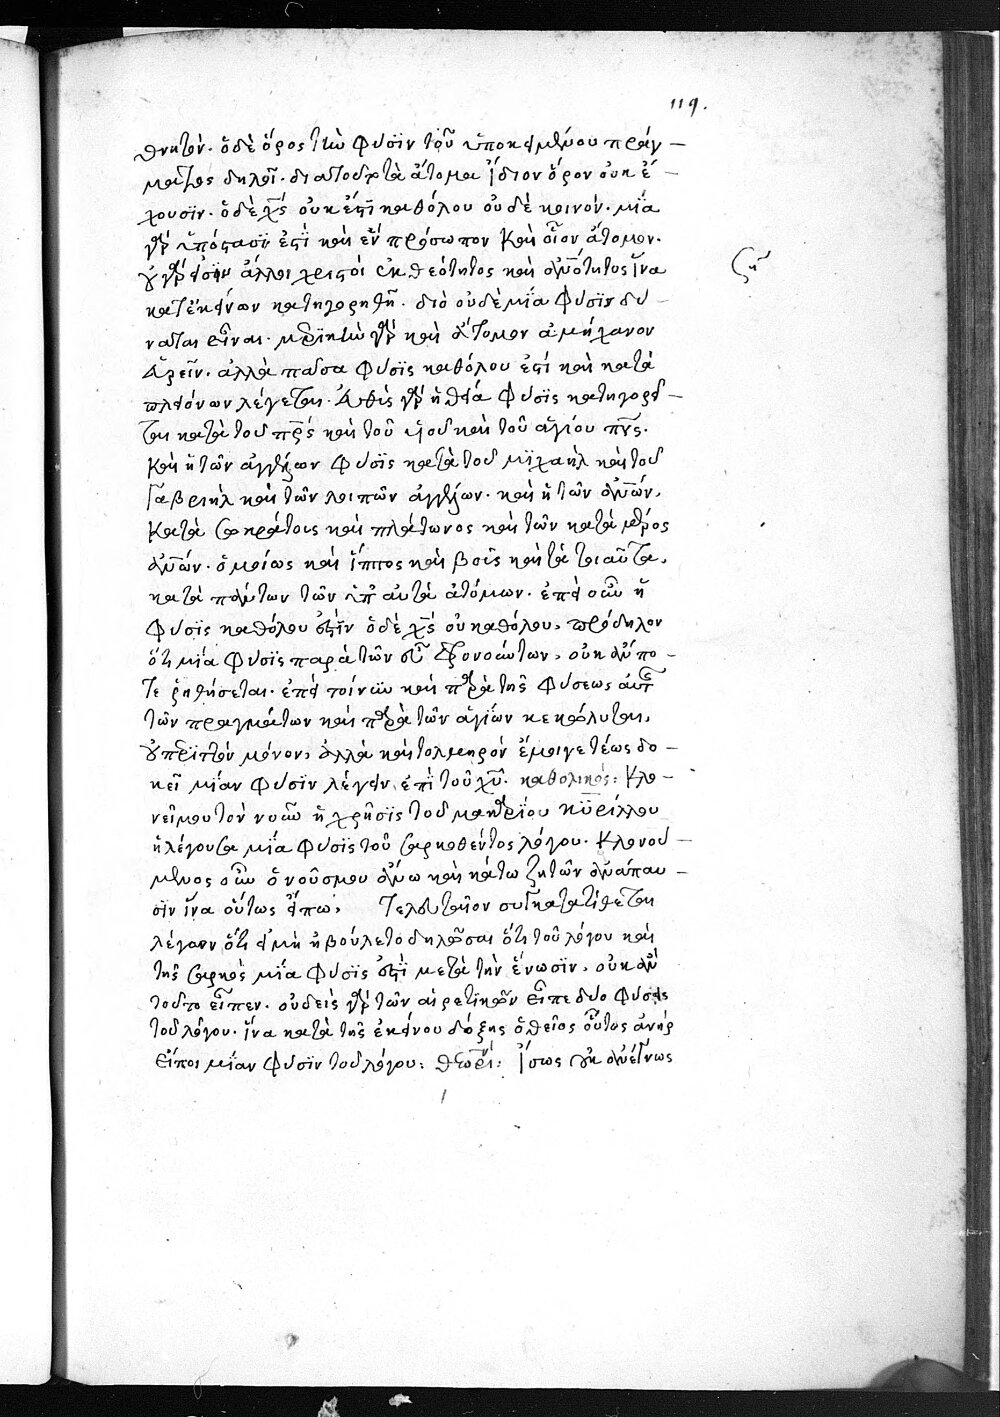 119.
θνητόν. ὁ δὲ ὅρος τὴν φύσιν τοῦ ὑποκειμένου πράγ –
ματος δηλοῖ. διατοῦτο τὰ ἄτομα ἴδιον ὅρον οὐκ ἔ –
χουσιν. ὁ δὲ χς οὐκ ἐστὶ καθόλου οὐδὲ κοινόν. μία
γὰρ ὑπόστασις ἐστὶ καὶ ἓν πρόσωπον καὶ οἷον ἄτομον.
οὐ γάρ εἰσιν ἄλλοι χριστοὶ ἐκ θεότητος καὶ ἀνότητος ἵνα
κατ' ἐκείνων κατηγορηθῇ. διὸ οὐδὲ μία φύσις δύ –
ναται εἶναι. μερικὴν γὰρ καὶ ἄτομον ἀμήχανον
εὑρεῖν. ἀλλὰ πᾶσα φύσις καθόλου ἐστὶ καὶ κατὰ
πλειόνων λέγεται. εὐθὺς γὰρ ἡ θεία φύσις κατηγορεῖ –
ται κατὰ τοῦ πρς καὶ τοῦ υἱοῦ καὶ τοῦ ἁγίου πνς.
καὶ ἡ τῶν ἀγγέλων φύσις κατὰ τοῦ μιχαὴλ καὶ τοῦ
γαβριὴλ καὶ τῶν λοιπῶν ἀγγέλων. καὶ ἡ τῶν ἀνῶν,
κατὰ σωκράτους καὶ πλάτωνος καὶ τῶν κατὰ μέρος
ἀνῶν. ὁμοίως καὶ ἵππος καὶ βοῦς καὶ τὰ τοιαῦτα,
κατὰ πάντων τῶν ὑπ' αὐτὰ ἀτόμων. ἐπεὶ οὖν ἡ
φύσις καθόλου ἐστὶν ὁ δὲ χς οὐ καθόλου, πρόδηλον
ὅτι μία φύσις παρὰ τῶν εὖ φρονούντων, οὐκ ἄν πο –
τε ῥηθήσεται. ἐπεὶ τοίνυν καὶ παρὰ τῆς φύσεως αὐτῆς
τῶν πραγμάτων καὶ παρὰ τῶν ἁγίων κεκώλυται,
οὐ περιττὸν μόνον, ἀλλὰ καὶ τολμηρὸν ἔμοιγε τέως δο –
κεῖ μίαν φύσιν λέγειν ἐπὶ τοῦ χυ. καθολικός: Κλο –
νεῖ μου τὸν νοῦν ἡ χρῆσις τοῦ μακαρίου κυρίλλου
ἡ λέγουσα μία φύσις τοῦ σαρκωθέντος λόγου. κλονού –
μενος οὖν ὁ νοῦς μου ἄνω καὶ κάτω ζητῶν ἀνάπαυ –
σιν ἵνα οὕτως εἴπω, τελευταῖον συγκατατίθεται
λέγων ὅτι εἰ μὴ ἠβούλετο δηλῶσαι ὅτι τοῦ λόγου καὶ
τῆς σαρκὸς μία φύσις ἐστὶ μετὰ τὴν ἕνωσιν, οὐκ ἂν
τοῦτο εἶπεν. οὐδεὶς γὰρ τῶν αἱρετικῶν εἶπε δύο φύσεις
τοῦ λόγου. ἵνα κατὰ τῆς ἐκείνου δόξης ὁ θεῖος οὗτος ἀνὴρ
εἴποι μίαν φύσιν τοῦ λόγου: θεωρι: Ἴσως οὐκ ἀνέγνως